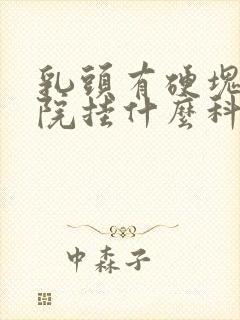 乳頭有硬塊
院挂什麼科
中森子